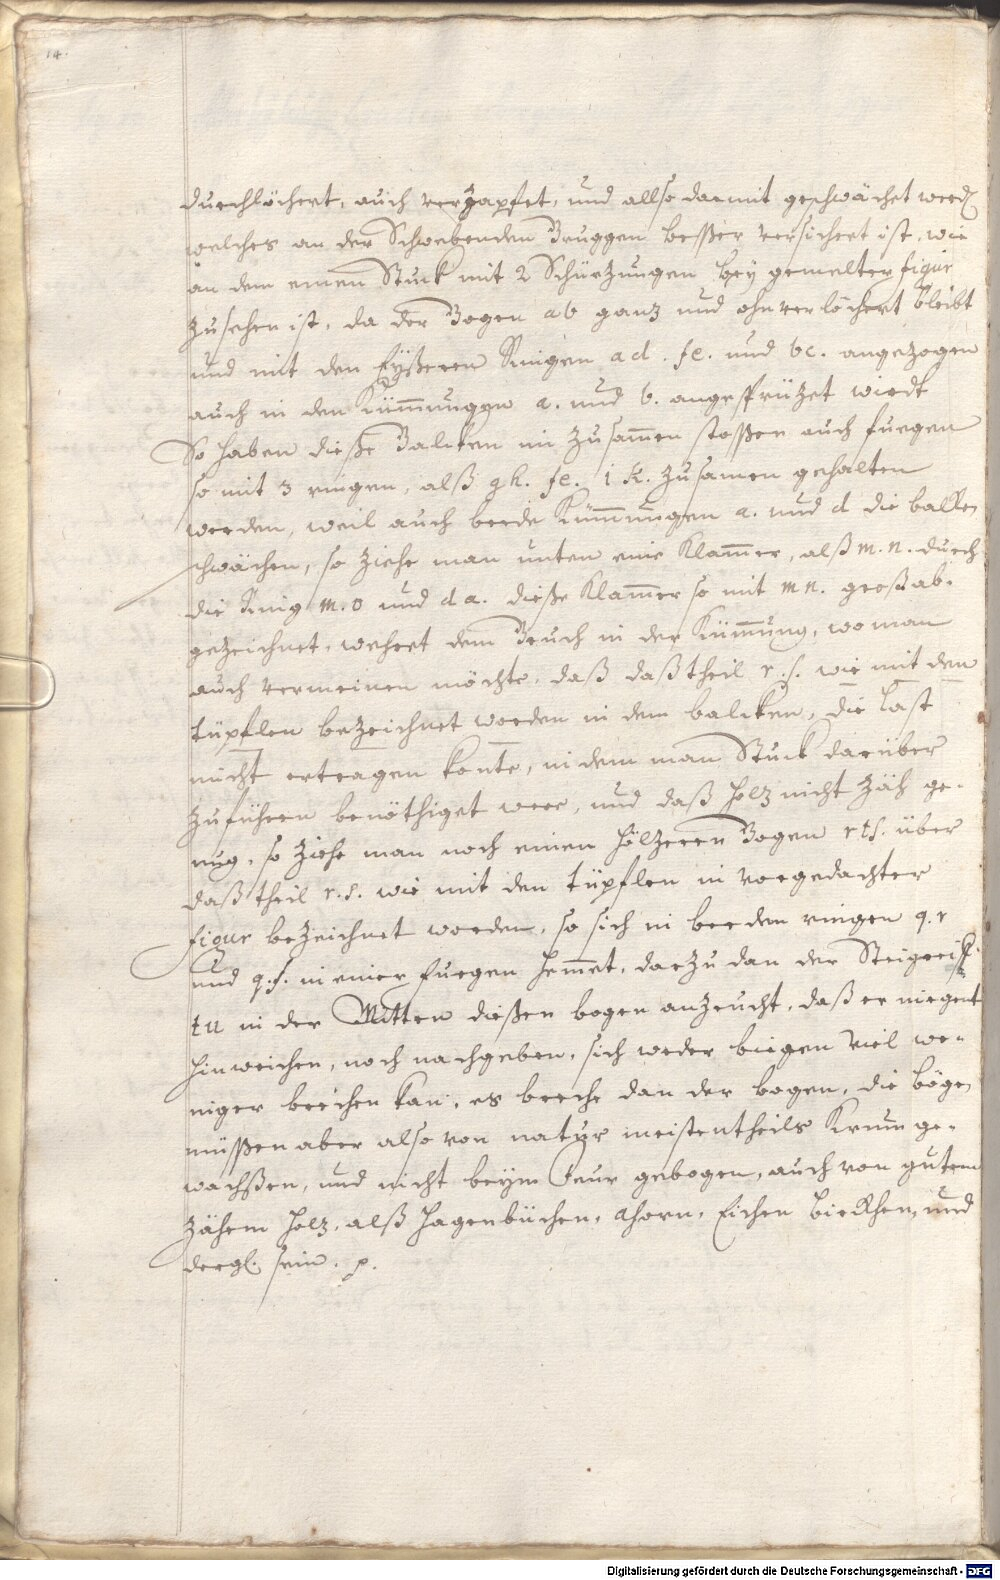 14.
durchlöchert, auch verzapfet, und allso darmit geschwächet werd
welches an der Schwebenden Bruggen besser versichert ist, wie
an dem einen Stuck mit 2 Schürzungen bey gemelter figur
zusehen ist, da der Bogen ab ganz und ohnverlöchert bleibt
und mit den Eyßeren Ringen ad. fe. und bc. angezogen
auch in den Kümmungen a. und b. angespräzet wirdt
So haben dieße Balcken im zusammen stoßen auch fuegen
so mit 3 ringen, alß gh. fe. ik. zusamen gehalten
werden, weil auch beede Kümmungen a. und d die balken
schwächen, so ziehe man unten eine Klammer, alß m.n. durch
die Ring m.o und da. dieße Klammer so mit mn. groß ab-
gezeichnet, wehret dem Bruch in der Kümmung, wo man
auch vermeinen möchte, daß daß theil r.s. wie mit den
tüpflen bezeichnet worden in dem balcken, die Last
nicht ertragen konte, indem man Stuck darüber
zuführen benöthiget were, und daß holz nicht zäh ge-
nug, so ziehe man noch einen hölzeren Bogen rts. über
daß theil r.s. wie mit den tüpflen in vorgedachter
figur bezeichnet worden, so sich in beeden ringen q.r
und q.s. in einer fuegen hemmet, darzu dan der Steigreiff
tu in der Mitten dießen bogen anzeucht, daß er nirgent
hinweichen, noch nachgeben, sich weder biegen viel we-
niger brechen kan, es breche dan der bogen, die bögen
müssen aber also von natur meistentheils Krum ge-
wachßen, und nicht beym Feur gebogen, auch von gutem
zähem holz, alß hagenbüchen, ahorn, Eichen Birkhen, und
dergl. sein. p.
Digitalisierung gefördert durch die Deutsche Forschungsgemeinschaft - DFG